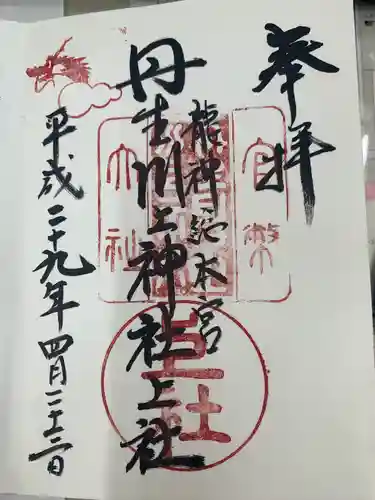 奉拝
龍神総本宮
丹生川上神社上社
平成二十九年四月二十二日
官幣
大社
上社